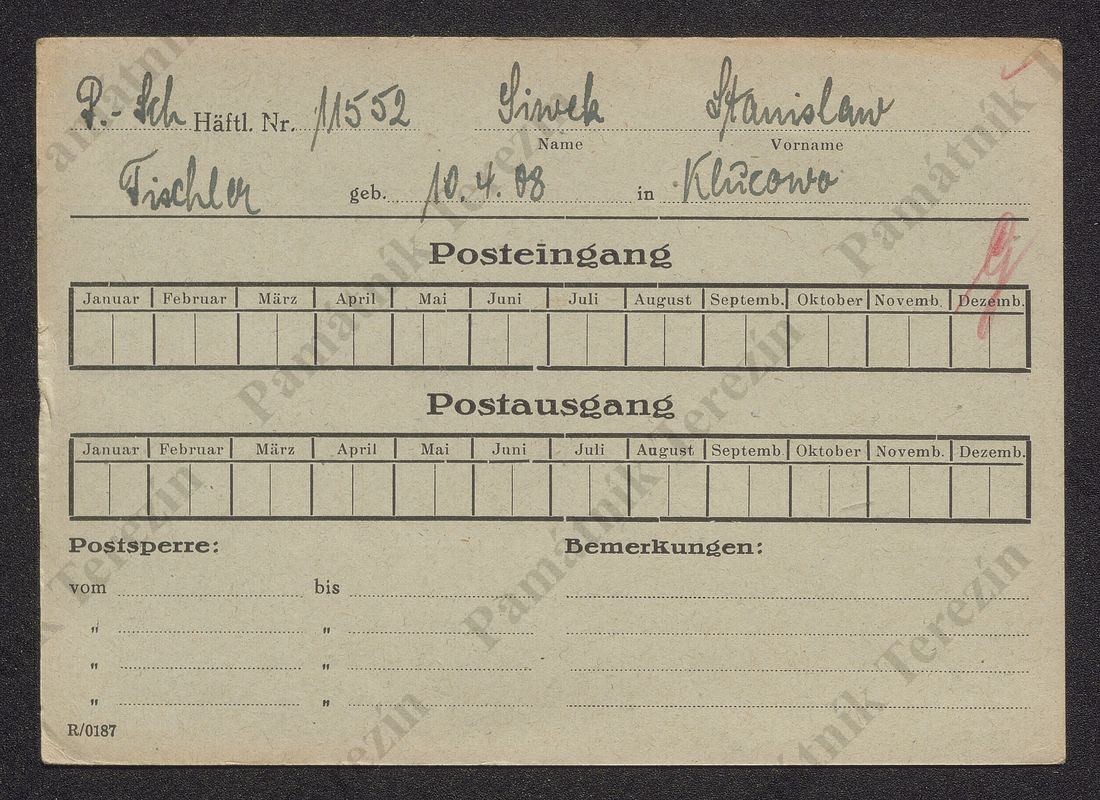 P.- Sch Häftl. Nr. 11552 Siwek Stanislaw
Name Vorname
Tischler geb. 10.4.08 in Klucowo
Posteingang
Januar Februar März April Mai Juni Juli August Septemb. Oktober Novemb. Dezemb.
Postausgang
Januar Februar März April Mai Juni Juli August Septemb. Oktober Novemb. Dezemb.
Postsperre: Bemerkungen:
vom bis
" "
" "
" "
R/0187
Památník Terezín